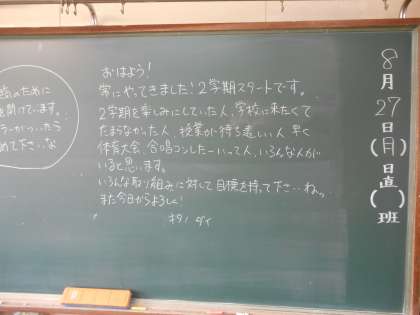 8月27日(月)日直( )班
おはよう!
常にやってきました!2学期スタートです。
2学期を楽しみにしていた人、学校に来たくて
たまらなかった人、授業が待ち遠しい人、早く
体育大会、合唱コンしたーいって人、いろんな人が
いると思います。
いろんな取り組みに対して目標を持って下さいね。
また今日からよろしく!
のために
開けています。
ったら
めて下さいな